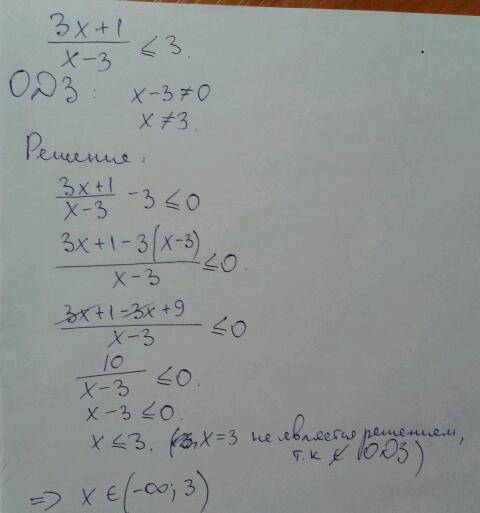 (3x+1)/(x-3) ≤ 3.
ОДЗ: x-3≠0
x≠3.
Решение:
(3x+1)/(x-3) -3 ≤ 0
(3x+1-3(x-3))/(x-3) ≤ 0.
(3x+1-3x+9)/(x-3) ≤ 0
10/(x-3) ≤ 0.
x-3 ≤ 0.
x ≤ 3. (x=3 не является решением,
т.к ∉ ОДЗ)
=> x ∈ (-∞; 3)